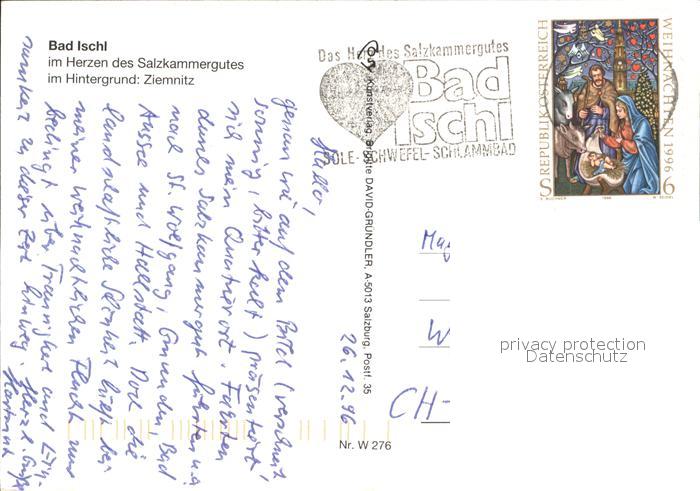 Bad Ischl
im Herzen des Salzkammergutes
im Hintergrund: Ziemnitz
Das Herz des Salzkammergutes
Bad
Ischl
SOLE-SCHWEFEL-SCHLAMMBAD
REPUBLIK ÖSTERREICH
WEIHNACHTEN 1996
S 6
1996
Kunstverlag Brigitte DAVID-GRÜNDLER, A-5013 Salzburg, Postf. 35
Hallo,
genau wie auf dem Bild (verschneit
sonnig, bitter kalt) präsentiert
sich mein Quartierort. Fahrten
durchs Salzkammergut führten u.a.
nach St. Wolfgang, Gmunden, Bad
Aussee und Hallstatt. Doch die
landschaftliche Schönheit half bei
meiner weihnachtlichen Flucht nur
bedingt über Traurigkeit und
zu dieser Zeit hinweg. Herzl. Grüße
26.12.96
Mag
W
CH-
Nr. W 276
privacy protection
Datenschutz